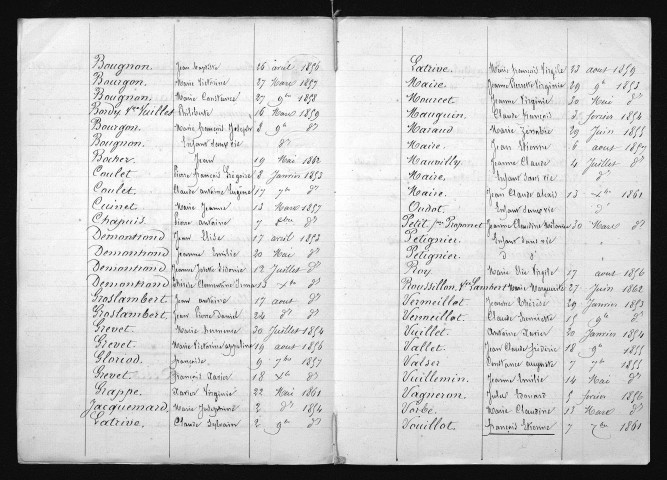 Bougnon. Jean Baptiste 26 avril 1856
Bourgon. Marie Victorine 27 Mars 1857
Bougnon. Marie Constance 27 9bre 1858
Bordy Vve Vuillet Philiberte 16 Mars 1859
Bourgon. Marie françois Joseph 3 9bre do
Bougnon. Enfant sans vie do
Bocher. Jean 19 Mai 1862
Coulet Pierre François Grégoire 8 Janvier 1853
Coulet. Claude antoine Eugène 17 7bre do
Cuinet Marie Jeanne 13 Mars 1857
Chapuis. Pierre antoine 7 do
Demontrond Jean Elise 17 avril 1853
Demontrond Jeanne Emilie 20 Mai do
Demontrond. Jeanne Sidonie 12 Juillet do
Demontrond Clementine 13 Xbre do
Groslambert Jean antoine 17 aout do
Groslambert. Jean Pierre Daniel 24 do do
Grevet. Marie 30 Juillet 1854
Grevet Marie Victorine 19 aout 1856
Gloriod. françoise 9 7bre 1857
Grevet. françois Xavier 18 Xbre do
Grappe. Xavier Virginie 22 Mai 1861
Jacquemard. Marie Josephine 2 do 1854
Latrive. Claude Sylvain 2 9bre do
Latrive. Marie François Virgile 23 aout 1859
Maire. Jeanne Pierrette Virginie 29 9bre 1853
Mourcet. Jeanne Virginie 30 Mai do
Mauguin. Claude François 3 fevrier 1854
Maraud. Marie Zénobie 29 Juin 1855
Maire. Jean Etienne 6 aout 1857
Mauvilly Jeanne Claude 4 Juillet do
Maire. Enfant sans vie do
Maire. Jean Claude alexis 13 Xbre 1861
Oudot. Enfant sans vie do
Petit fme Proponet Jeanne Claudine 30 Mars do
Petignier. Enfant sans vie
Petignier. do do
Roy. Marie 17 aout 1856
Roussillon, Vve Lambert Marie Marguerite 27 Juin 1862
Vermeillot. Jeanne Thérèse 29 Janvier 1853
Vermeillot. Claude 15 9bre do
Vuillet. Antoine Xavier 30 Janvier 1854
Vallet. Jean Claude Frédéric 18 9bre 1855
Valser Constance auguste 7 7bre 1855
Vuillemin. Jeanne Emilie 14 Mai do
Vagneron. Jules Edouard 5 fevrier 1856
Vorbe. Marie Claudine 13 Mars do
Vouillot. françois Etienne 7 7bre 1861